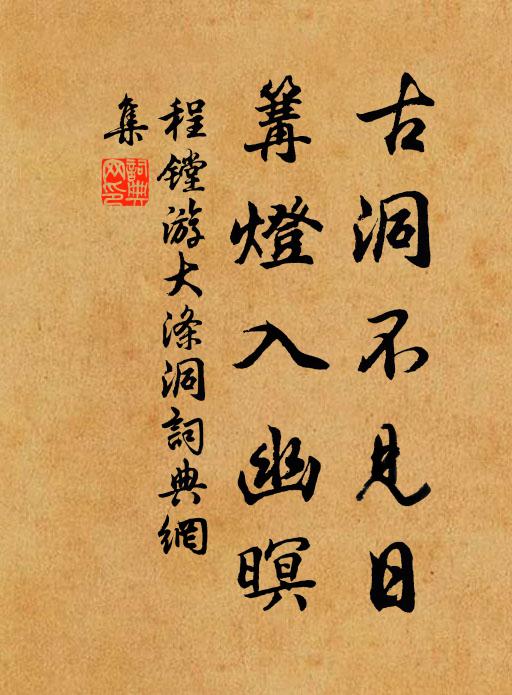 古洞不見日
篝燈入幽暝
程鏜游大滌洞詞典網
集
詞典
网印